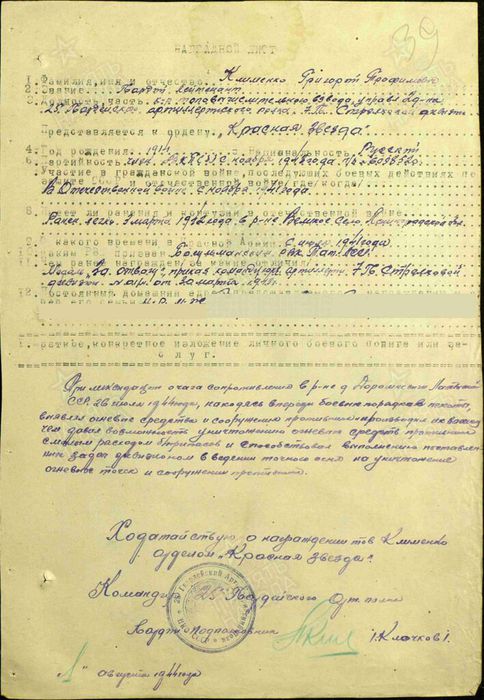 39
НАГРАДНОЙ ЛИСТ
1. Фамилия, имя и отчество Клименко Григорий Трофимович
2. Звание Гвардии лейтенант
3. Должность, часть взвода управл. 2 д-на
25 Гвардейского артиллерийского полка 7 Гв. Стрелковой дивизии
Представляется к ордену „Красная Звезда"
4. Год рождения 1914 5. Национальность Русский
6. Партийность член ВКП(б) с ноября 1942 года п/б
7. Участие в гражданской войне, последующих боевых действиях по
защите СССР и отечественной войне /где, когда/
В Отечественной войне с ноября 1941 года.
8. Имеет ли ранения и контузии в отечественной войне
Ранен легко 9 марта 1942 года в р-не Великое Село, Ленинградской обл.
9. С какого времени в Красной Армии С июля 1941 года
10. Каким РВК призван РВК Тат. АССР.
11. Чем ранее награжден /за какие отличия/
Медаль „За отвагу", приказ командующ. артиллерии 7 Гв. Стрелковой
дивизии от 30 марта
12. Постоянный домашний адрес
1. Краткое, конкретное изложение личного боевого подвига или зас-
луг.
При ликвидации очага сопротивления в р-не д. Латвийской
ССР 26 июля 1944 года, находясь впереди боевых порядков пехоты,
выявлял огневые средства и сооружения противника
чем давал возможность уничтожению огневых средств противника
с малым расходом боеприпасов и способствовал выполнению поставлен-
ных задач дивизионом в ведении точного огня на уничтожение
огневых точек и сооружений противника.
Ходатайствую о награждении тов. Клименко
орденом „Красная Звезда".
Командир 25 Гвардейского Арт. полка
Гвардии Подполковник /Клочков/.
„1" августа 1944 года